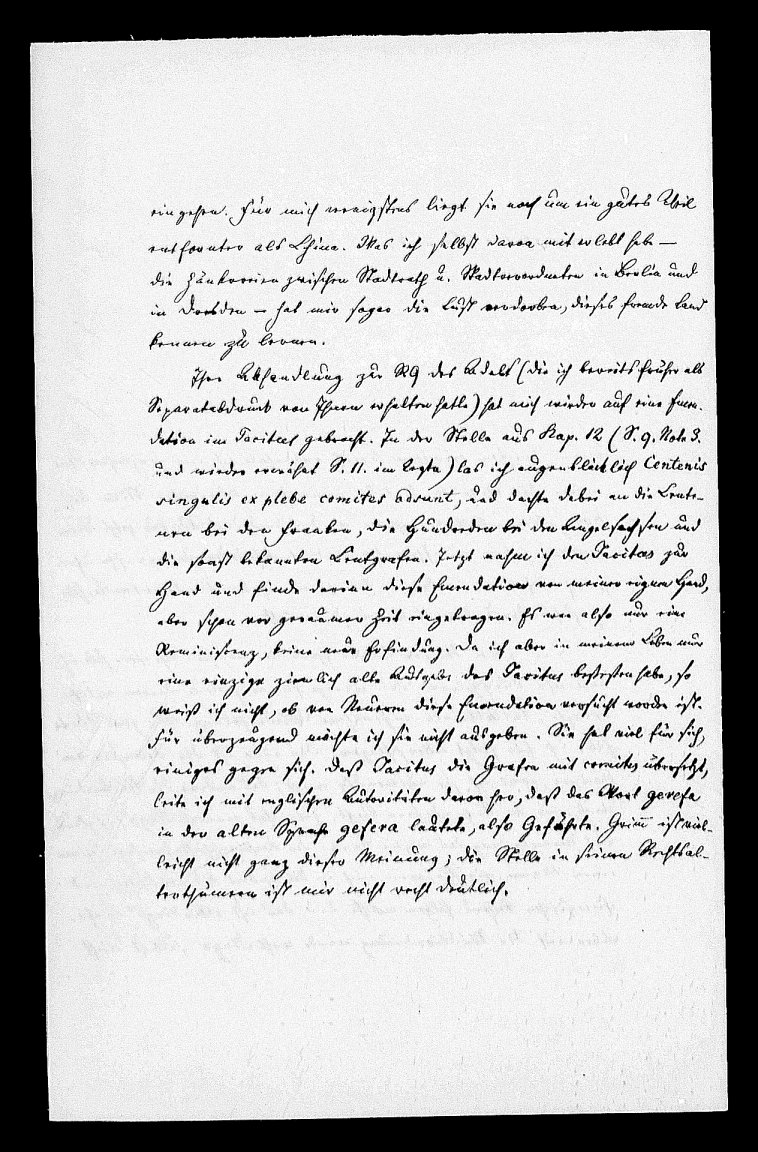 eingehen. Für mich wenigstens liegt sie noch um ein gutes Theil
entfernter als China. Was ich selbst davon mit erlebt habe —
die Zänkereien zwischen Stadtrath u. Stadtverordneten in Berlin und
in Dresden — hat mir sogar die Lust verdorben, dieses fremde Land
kennen zu lernen.
Ihre Abhandlung zur RG des Adels (die ich bereits früher als
Separatabdruck von Ihnen erhalten hatte) hat mich wieder auf eine Emen-
dation im Tacitus gebracht. In der Stelle aus Kap. 12 (S. 9. Note 3.
und wieder erwähnt S. 11. im Texte) las ich augenblicklich Centenis
singulis ex plebe comites adsunt, und dachte dabei an die Cente-
nen bei den Franken, die Hunderden bei den Angelsachsen und
die sonst bekannten Centgrafen. Jetzt nahm ich den Tacitus zur
Hand und finde darinn diese Emendation von meiner eignen Hand,
aber schon vor geraumer Zeit eingetragen. Es war also nur eine
Reminiscenz, keine neue Erfindung. Da ich aber in meinem Leben nur
eine einzige ziemlich alte Ausgabe des Tacitus besessen habe, so
weiß ich nicht, ob von Neueren diese Emendation versucht worden ist.
Für überzeugend möchte ich sie nicht ausgeben. Sie hat viel für sich,
einiges gegen sich. Daß Tacitus die Grafen mit comites übersetzt,
leite ich mit englischen Autoritäten davon her, daß das Wort gerefa
in der alten Sprache gefera lautete, also Gefährte. Grim̄ ist viel-
leicht nicht ganz dieser Meinung; die Stelle in seinen Rechtsal-
terthümern ist mir nicht recht deutlich.